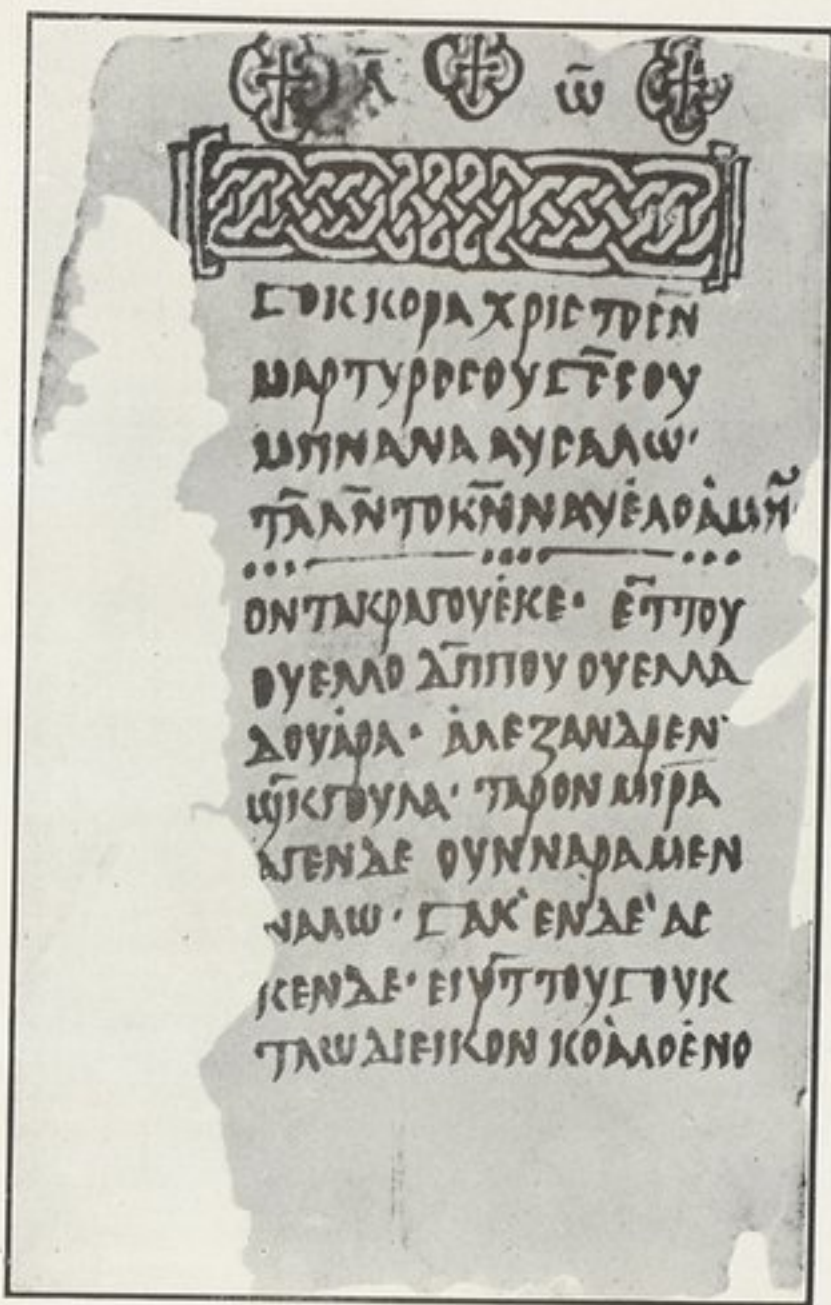 ⲁ̄ ⲱ̄
ⳟⲟⲕⲕⲟⲣⲁ ⲭⲣⲓⲥⲧⲟⲥⲛ̄
ⲙⲁⲣⲧⲩⲣⲟⲥⲟⲩ ⳟⲥ̄ⲥⲟⲩ
ⲙⲏⲛⲁⲛⲁ ⲁⲩⲥⲁⲗⲱ·
ⲧⲁ̄ⲗⲗⲛ̄ ⲧⲟⲕⲛ̄ⲛⲁⲩⲉ̇ⲗⲟ ⲁ̇ⲙⲏ̄ⲛ·
ⲟⲛ ⲧⲁⲕⲣⲁⲅⲟⲩⲉ̇ⲕⲉ· ⲉⲓ̄ⲧⲧⲟⲩ
ⲟⲩⲉⲗⲗⲟ ⲇⲡ̄ⲡⲟⲩ ⲟⲩⲉⲗⲗⲁ
ⲇⲟⲩⲁ̇ⲣⲁ· ⲁ̇ⲗⲉⲝⲁⲛⲇⲣⲉⲛ·
ϣⲓ̄ⲕⲅⲟⲩⲗⲁ· ⲧⲁⲣⲟⲛ ⲙⲓⲣ̄ⲁ
ⲁⲅⲉⲛⲇⲉ ⲟⲩⲛⲛⲁⲣⲁⲙⲉⲛ
ⲛⲁⲗⲱ· ⳟⲁⲕ̇ⲉⲛⲇⲉ̇ ⲁⲥ
ⲕⲉⲛⲇⲉ· ⲉⲓⲩ̄ⲧⲧⲟⲩⳟⲟⲩⲕ
ⲧⲗⲱ ⲇⲓⲉⲓⲕⲟⲛ ⲕⲟⲁ̇ⲗⲟⲉ̇ⲛⲟ